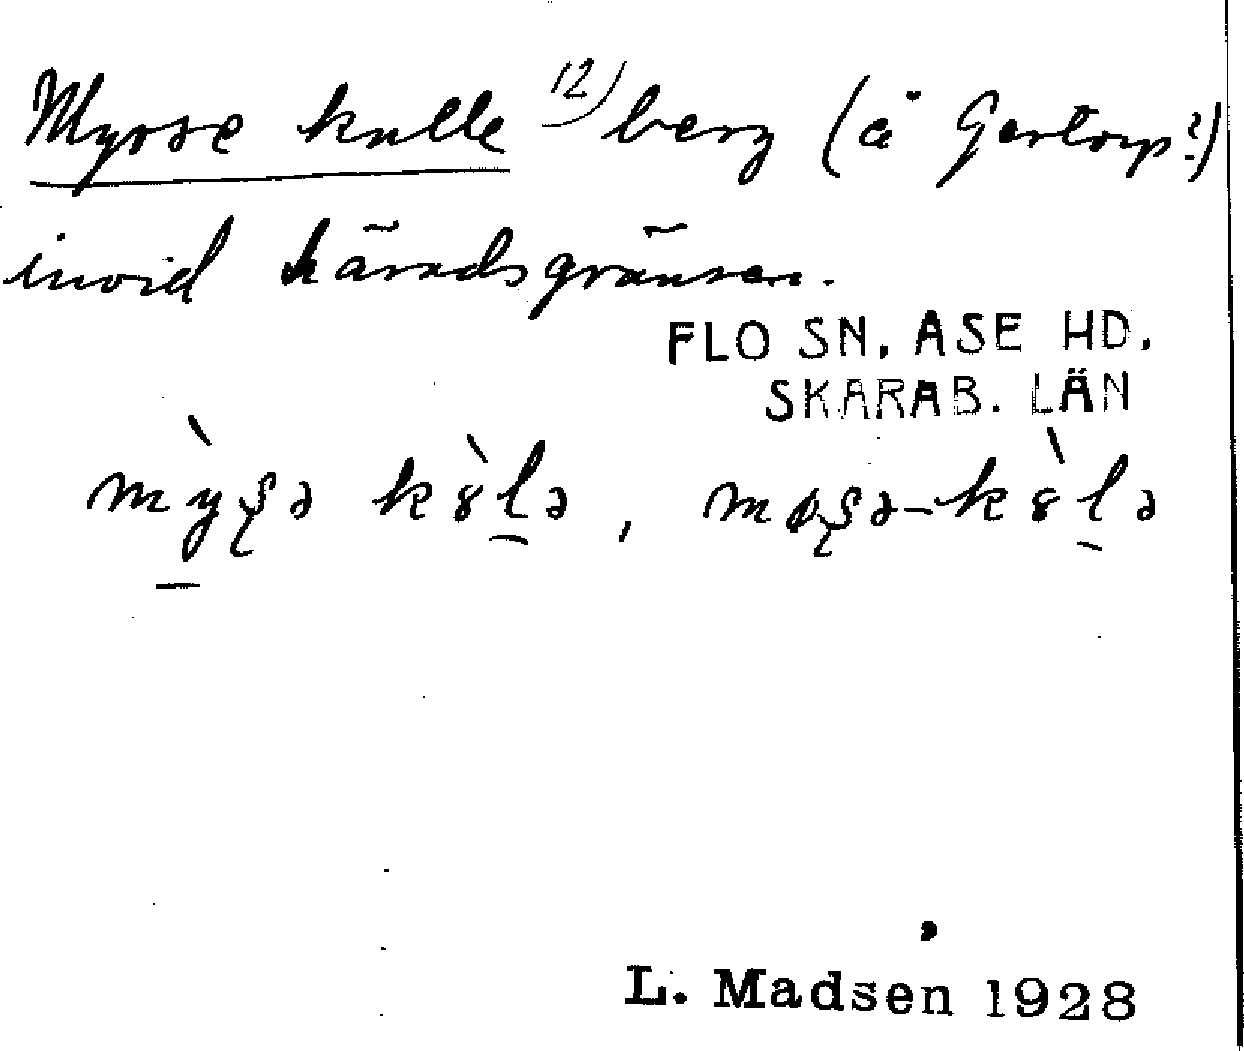 Myrse kulle 12) berg (å Gertorp?)
invid häradsgränsen.
FLO SN. ASE HD.
SKARAB. LÄN
L. Madsen 1928